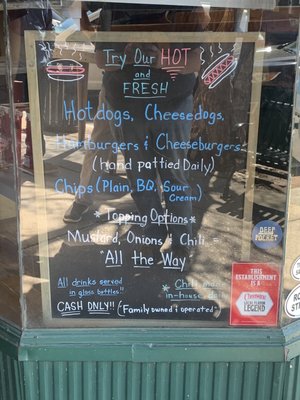 Try Our HOT
and
FRESH
Hotdogs, Cheesedogs,
Hamburgers & Cheeseburgers
(hand pattied Daily)
Chips (Plain, BQ, Sour
Cream)
* Topping Options *
Mustard, Onions & Chili =
"All the Way"
All drinks served
in glass bottles!!
* Chili made
in-house daily
CASH ONLY!!
(Family owned & operated)
DEEP
POCKET
THIS
ESTABLISHMENT
IS A
LEGEND